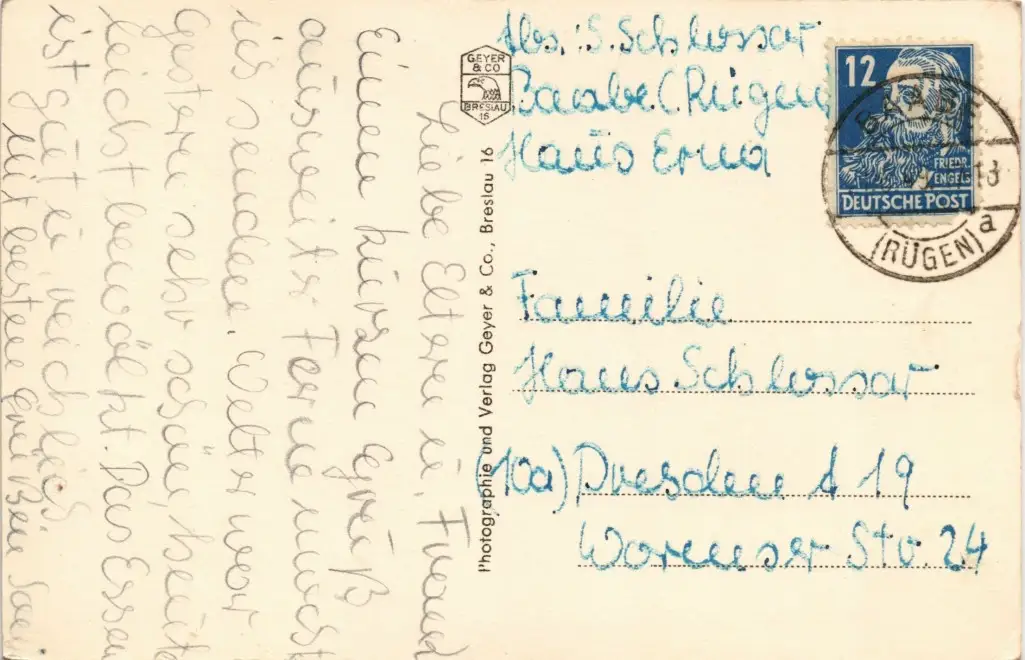 Abs. S. Schlossar
Baabe (Rügen)
Haus Erna
GEYER
& CO
BRESLAU
16
Photographie und Verlag Geyer & Co., Breslau 16
12
FRIEDR.
ENGELS
DEUTSCHE POST
BAABE
13
(RÜGEN) a
Familie
Hans Schlossar
(10a) Dresden A 19
Wormser Str. 24
Liebe Eltern u.
Einen kurzen Gruß
aus weiter Ferne
sendet. Wetter war
Gestern sehr schön, heute
leicht bewölkt. Das Essen
ist gut u. reichlich.
Mit besten